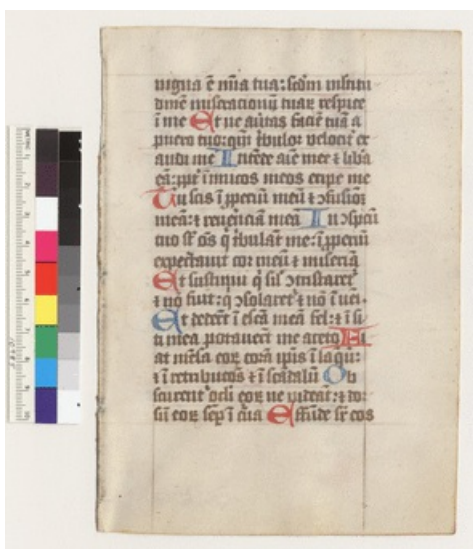 nigna ē mīa tua: scdm multitu
dinē miseracionū tuaꝝ respice
ī me Et ne au̅tas faciē tuā a
puero tuo: qm̄ t̅bulor velocit̅ ex
audi me Intēde aīe mee ⁊ liba
eā: ppt̅ īimicos meos eripe me
Tu scis īpperiū meū ⁊ ɔfusionē
meā: ⁊ reuerēciā meā In ɔspectu
tuo st̅ oēs q̄ t̅bulāt me: īpperiū
expectauit cor meū ⁊ miseriā
Et sustinui q̄ sil̅ ɔtristaret̅
⁊ nō fuit: q̄ ɔsolaret̅ ⁊ nō īueni
Et dedert̅ ī escā meā fel: ⁊ ī si
ti mea potauert̅ me aceto Fi
at mēsa eoꝝ corā ip̄is ī laqueū:
⁊ ī retribucōes ⁊ ī scādalū Ob
scurent̅ ocl̅i eoꝝ ne videāt: ⁊ dor
sū eoꝝ semp̄ ī cūa Effūde sr̄ eos